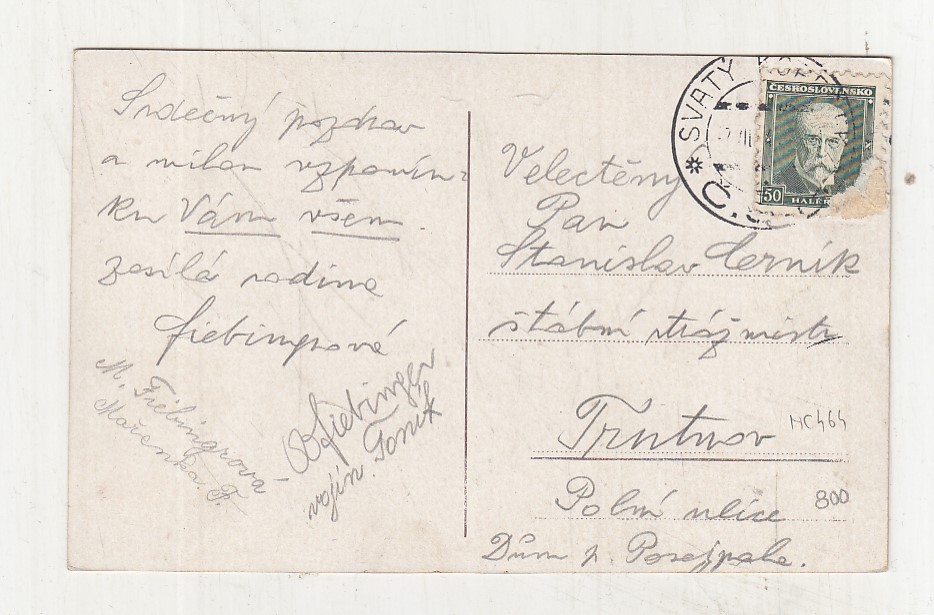 Srdečný pozdrav
a milou vzpomín-
ku Vám všem.
zasílá rodina
Fiebingrová
M. Fiebingrová
Mařenka. F.
B Fiebinger
vojín. Toník
SVATÝ
Č.S.
ČESKOSLOVENSKO
50 HALÉŘ
Velectěný
Pan
Stanislav Černík
štábní strážmistr
Trutnov
NC464
Polní ulice
800
Dům p. Posejpala.